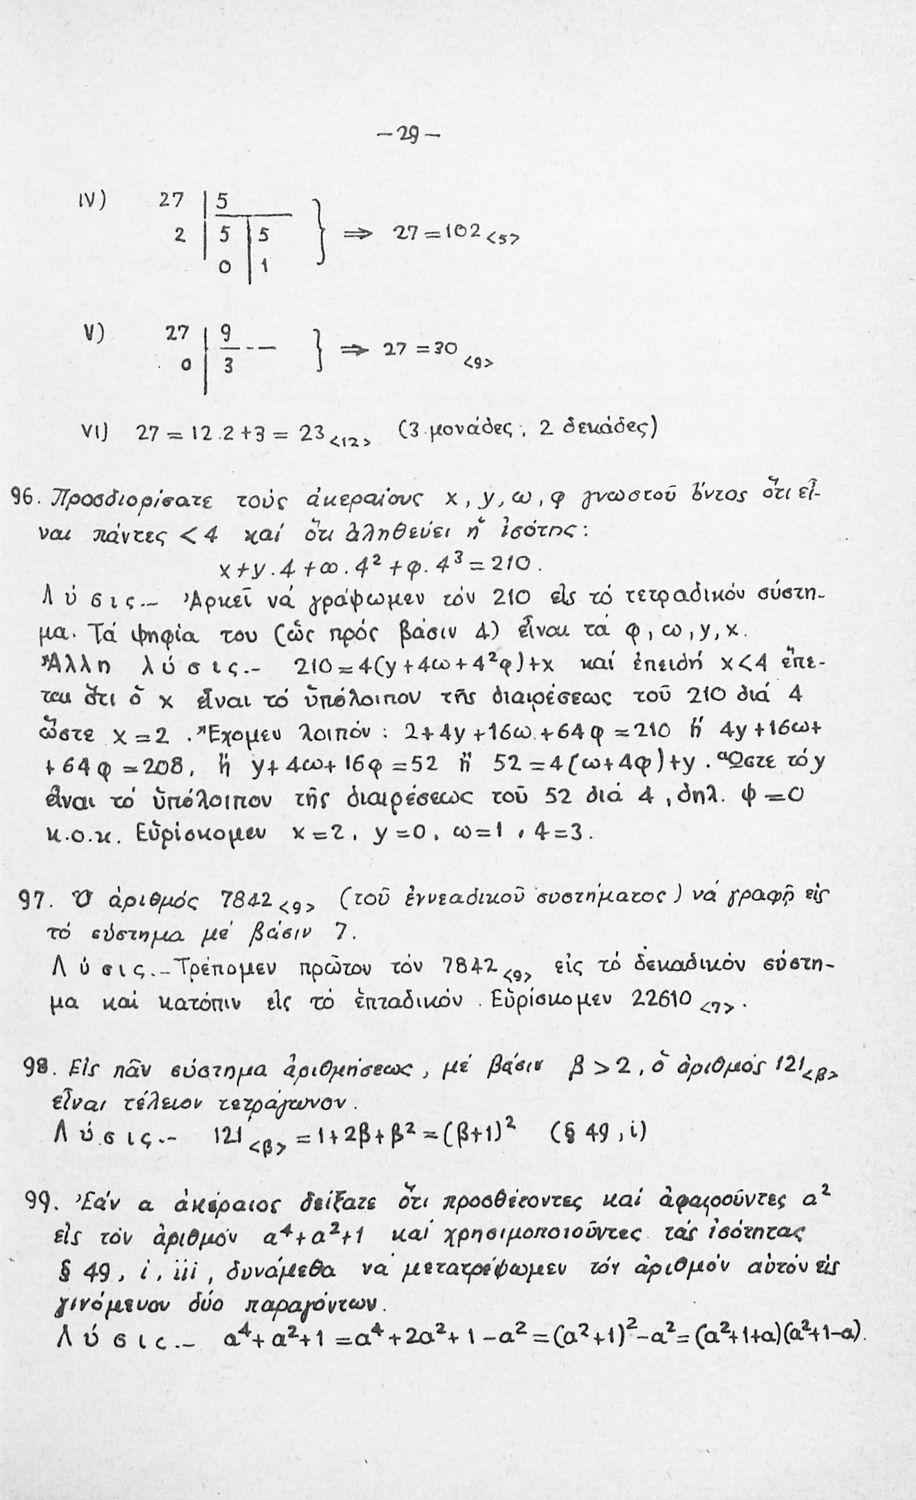 -29-
IV) 27 | 5
2 | 5 | 5 } ⇒ 27=102<5>
0 | 1
V) 27 | 9
0 | 3 } ⇒ 27=30<9>
VI) 27=12.2+3=23<12> (3 μονάδες, 2 δεκάδες)
96. Προσδιορίσατε τούς ἀκεραίους x, y, ω, φ γνωστοῦ ὄντος ὅτι εἶ-
ναι πάντες <4 καί ὅτι ἀληθεύει ἡ ἰσότης:
x+y.4+ω.4²+φ.4³=210.
Λύσις.- Ἀρκεῖ νά γράψωμεν τόν 210 εἰς τό τετραδικόν σύστη-
μα. Τά ψηφία του (ὡς πρός βάσιν 4) εἶναι τά φ, ω, y, x.
Ἄλλη λύσις.- 210=4(y+4ω+4²φ)+x καί ἐπειδή x<4 ἕπε-
ται ὅτι ὁ x εἶναι τό ὑπόλοιπον τῆς διαιρέσεως τοῦ 210 διά 4
ὥστε x=2. Ἔχομεν λοιπόν: 2+4y+16ω+64φ=210 ἤ 4y+16ω+
+64φ=208, ἤ y+4ω+16φ=52 ἤ 52=4(ω+4φ)+y. Ὥστε τό y
εἶναι τό ὑπόλοιπον τῆς διαιρέσεως τοῦ 52 διά 4, δηλ. ψ=0
κ.ο.κ. Εὑρίσκομεν x=2, y=0, ω=1, 4=3.
97. Ὁ ἀριθμός 7842<9> (τοῦ ἐννεαδικοῦ συστήματος) νά γραφῇ εἰς
τό σύστημα μέ βάσιν 7.
Λύσις.- Τρέπομεν πρῶτον τόν 7842<9> εἰς τό δεκαδικόν σύστη-
μα καί κατόπιν εἰς τό ἑπταδικόν. Εὑρίσκομεν 22610<7>.
98. Εἰς πᾶν σύστημα ἀριθμήσεως, μέ βάσιν β>2, ὁ ἀριθμός 121<β>
εἶναι τέλειον τετράγωνον.
Λύσις.- 121<β>=1+2β+β²=(β+1)² (§ 49, i)
99. Ἐάν α ἀκέραιος δείξατε ὅτι προσθέτοντες καί ἀφαιροῦντες α²
εἰς τόν ἀριθμόν α⁴+α²+1 καί χρησιμοποιοῦντες τάς ἰσότητας
§ 49, i, iii, δυνάμεθα νά μετατρέψωμεν τόν ἀριθμόν αὐτόν εἰς
γινόμενον δύο παραγόντων.
Λύσις.- α⁴+α²+1=α⁴+2α²+1-α²=(α²+1)²-α²=(α²+1+α)(α²+1-α).